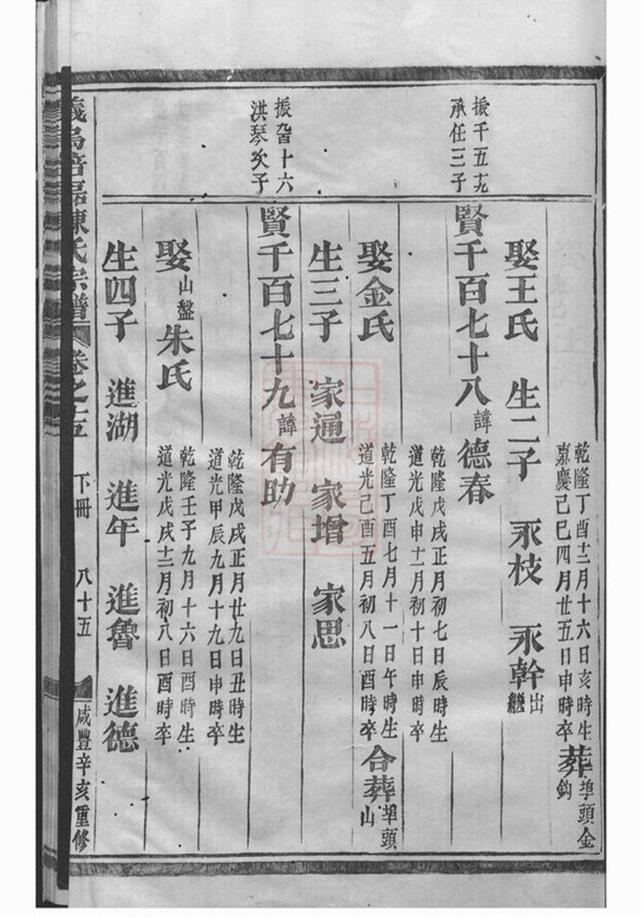 娶王氏 乾隆丁酉十二月十六日亥時生 嘉慶己巳四月廿五日申時卒 葬埠頭金鈎
生二子 永枝 永幹出繼
振千五十九
承任三子
賢千百七十八諱德春 乾隆戊戌正月初七日辰時生 道光戊申十二月初十日申時卒
娶金氏 乾隆丁酉七月十一日午時生 道光己酉五月初八日酉時卒 合葬埠頭山
生三子 家通 家增 家思
振百十六
洪琴次子
賢千百七十九諱有助 乾隆戊戌正月廿九日丑時生 道光甲辰九月十九日申時卒
娶山盤朱氏 乾隆壬子九月十六日酉時生 道光戊戌十二月初八日酉時卒
生四子 進湖 進年 進魯 進德
義烏 陳氏宗譜 卷之 下冊 八十五 咸豐辛亥重修